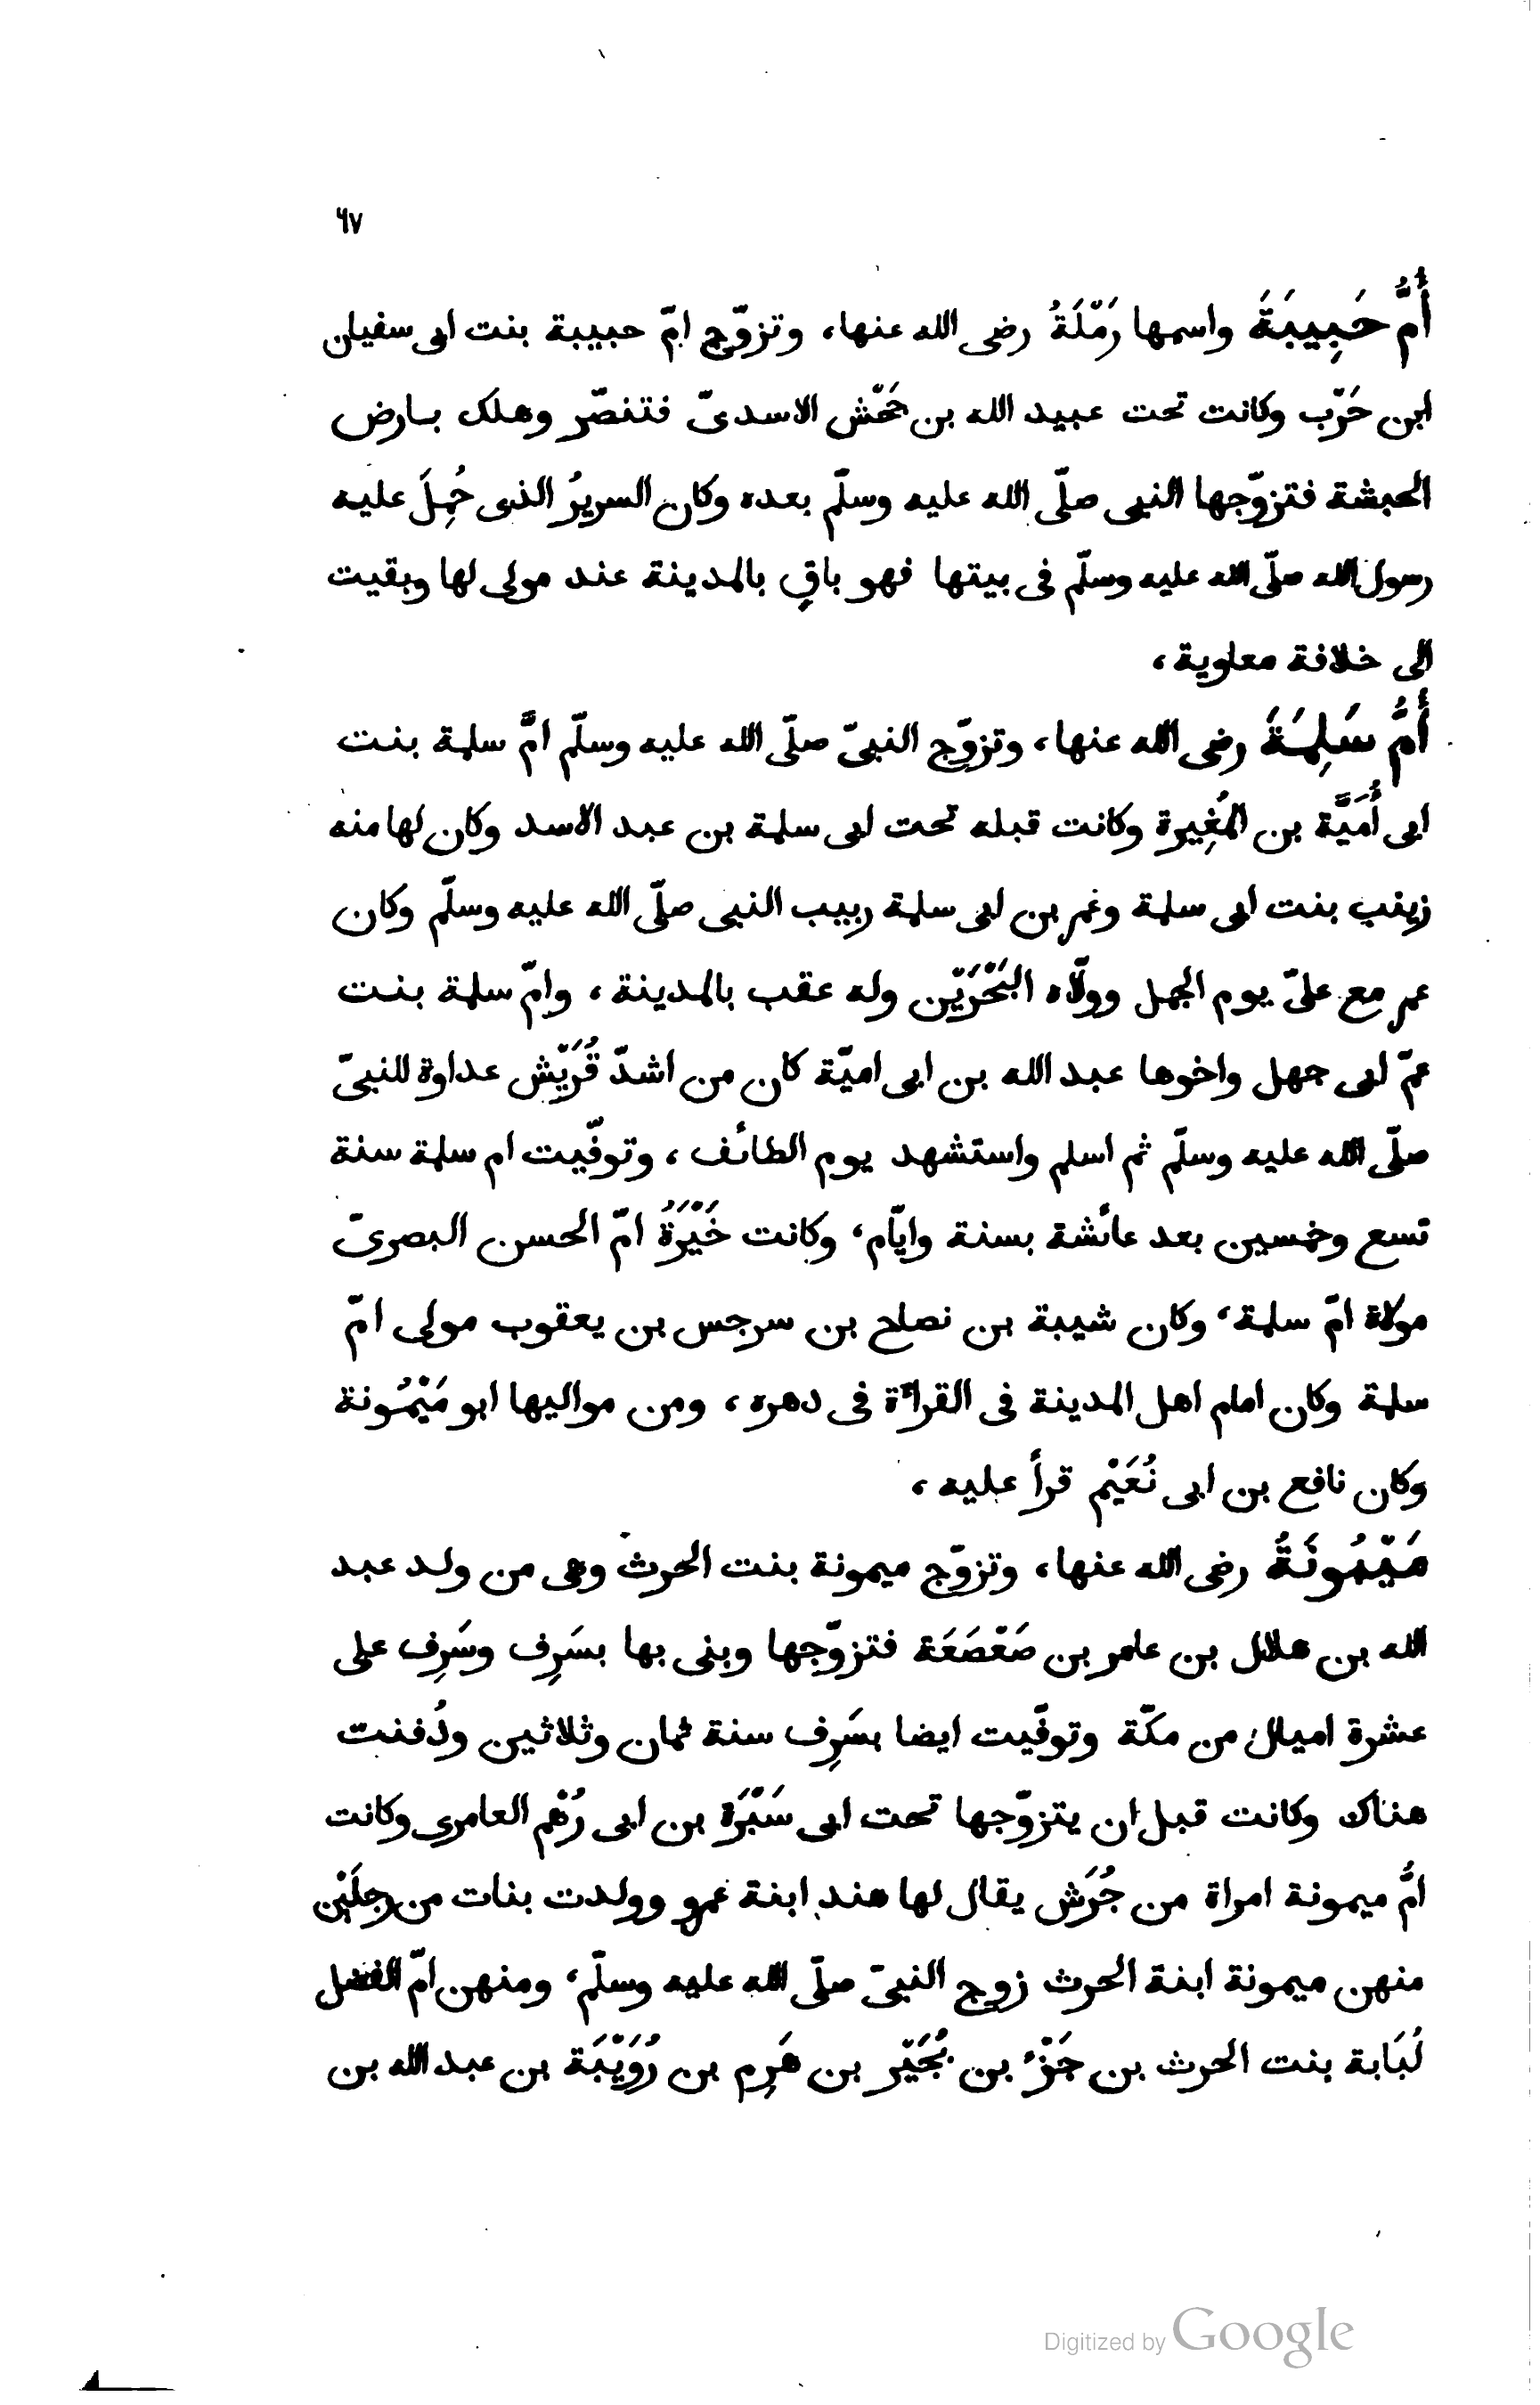 ٦٧
أُمُّ حَبِيبَةَ واسمها رَمْلَةُ رضى الله عنها، وتزوّج امّ حبيبة بنت ابى سفيان
ابن حَرْب وكانت تحت عبيد الله بن جَحْش الاسدىّ فتنصّر وهلك بارض
الحبشة فتزوّجها النبى صلّى الله عليه وسلّم بعده وكان السريرُ الذى حُمِلَ عليه
رسول الله صلّى الله عليه وسلّم فى بيتها فهو باقٍ بالمدينة عند مولى لها وبقيت
الى خلافة معاوية،
أُمُّ سَلِمَةَ رضى الله عنها، وتزوّج النبىّ صلّى الله عليه وسلّم امَّ سلمة بنت
ابى أُمَيَّة بن المُغِيرة وكانت قبله تحت ابى سلمة بن عبد الاسد وكان لها منه
زينب بنت ابى سلمة وعمر بن ابى سلمة ربيب النبى صلّى الله عليه وسلّم وكان
عمر مع علىّ يوم الجمل وولّاه البَحْرَيْن وله عقب بالمدينة، وامّ سلمة بنت
عمّ ابى جهل واخوها عبد الله بن ابى اميّة كان من اشدّ قُرَيْش عداوة للنبىّ
صلّى الله عليه وسلّم ثم اسلم واستشهد يوم الطائف، وتوفّيت ام سلمة سنة
تسع وخمسين بعد عائشة بسنة وايّام، وكانت خَيْرَةُ امّ الحسن البصرىّ
مولاة امّ سلمة، وكان شيبة بن نصاح بن سرجس بن يعقوب مولى امّ
سلمة وكان امام اهل المدينة فى القراءة فى دهره، ومن مواليها ابو مَيْمُونة
وكان نافع بن ابى نُعَيْم قرأ عليه،
مَيْمُونَةُ رضى الله عنها، وتزوّج ميمونة بنت الحرث وهى من ولد عبد
الله بن هلال بن عامر بن صَعْصَعَة فتزوّجها وبنى بها بسَرِف وسَرِف على
عشرة اميال من مكّة وتوفّيت ايضا بسَرِف سنة ثمان وثلاثين ودُفنت
هناك وكانت قبل ان يتزوّجها تحت ابى سَبْرَة بن ابى رُهْم العامرى وكانت
امُّ ميمونة امراة من جُرَش يقال لها هند ابنة عمرو وولدت بنات من رجلَيْن
منهن ميمونة ابنة الحرث زوج النبىّ صلّى الله عليه وسلّم، ومنهن امّ الفضل
لُبَابة بنت الحرث بن جَزْء بن بُجَيْر بن هَرِم بن رُوَيْبَة بن عبد الله بن
Digitized by Google